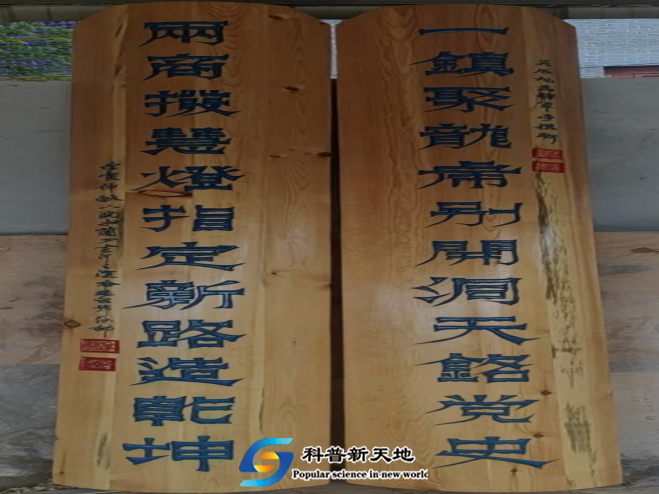 一鎮聚龍虎别開洞天銘党史
兩商撥慧燈指定新路造乾坤
科普新天地
Popular science in new world